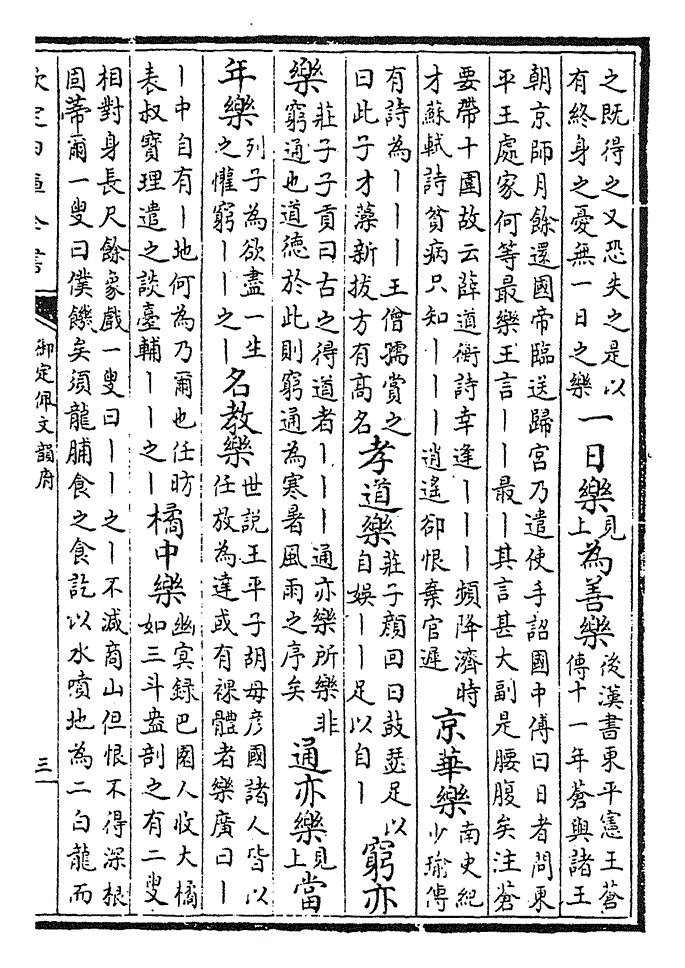 之既得之又恐失之是以
有終身之憂無一日之樂
一日樂
見
上
為善樂
後漢書東平憲王蒼
傳十一年蒼與諸王
朝京師月餘還國帝臨送歸宮乃遣使手詔國中傅曰日者問東
平王處家何等最樂王言丨丨最丨其言甚大副是腰腹矣注蒼
要帶十圍故云薛道衡詩幸逢丨丨丨頻降濟時
才蘇軾詩貧病只知丨丨丨逍遙卻恨棄官遲
京華樂
南史紀
少瑜傳
有詩為丨丨丨王僧孺賞之
曰此子才藻新拔方有高名
孝道樂
莊子顏回曰鼓瑟足以
自娛丨丨足以自丨
窮亦
樂
莊子子貢曰古之得道者丨丨丨通亦樂所樂非
窮通也道德於此則窮通為寒暑風雨之序矣
通亦樂
見
上
當
年樂
列子為欲盡一生
之懽窮丨丨之丨
名教樂
世說王平子胡毋彥國諸人皆以
任放為達或有裸體者樂廣曰丨
丨中自有丨地何為乃爾也任昉
表叔寶理遣之談臺輔丨丨之丨
橘中樂
幽冥錄巴園人收大橘
如三斗盎剖之有二叟
相對身長尺餘象戲一叟曰丨丨之丨不減商山但恨不得深根
固蒂爾一叟曰僕饑矣須龍脯食之食訖以水噴地為二白龍而
欽定四庫全書
御定佩文韻府
三